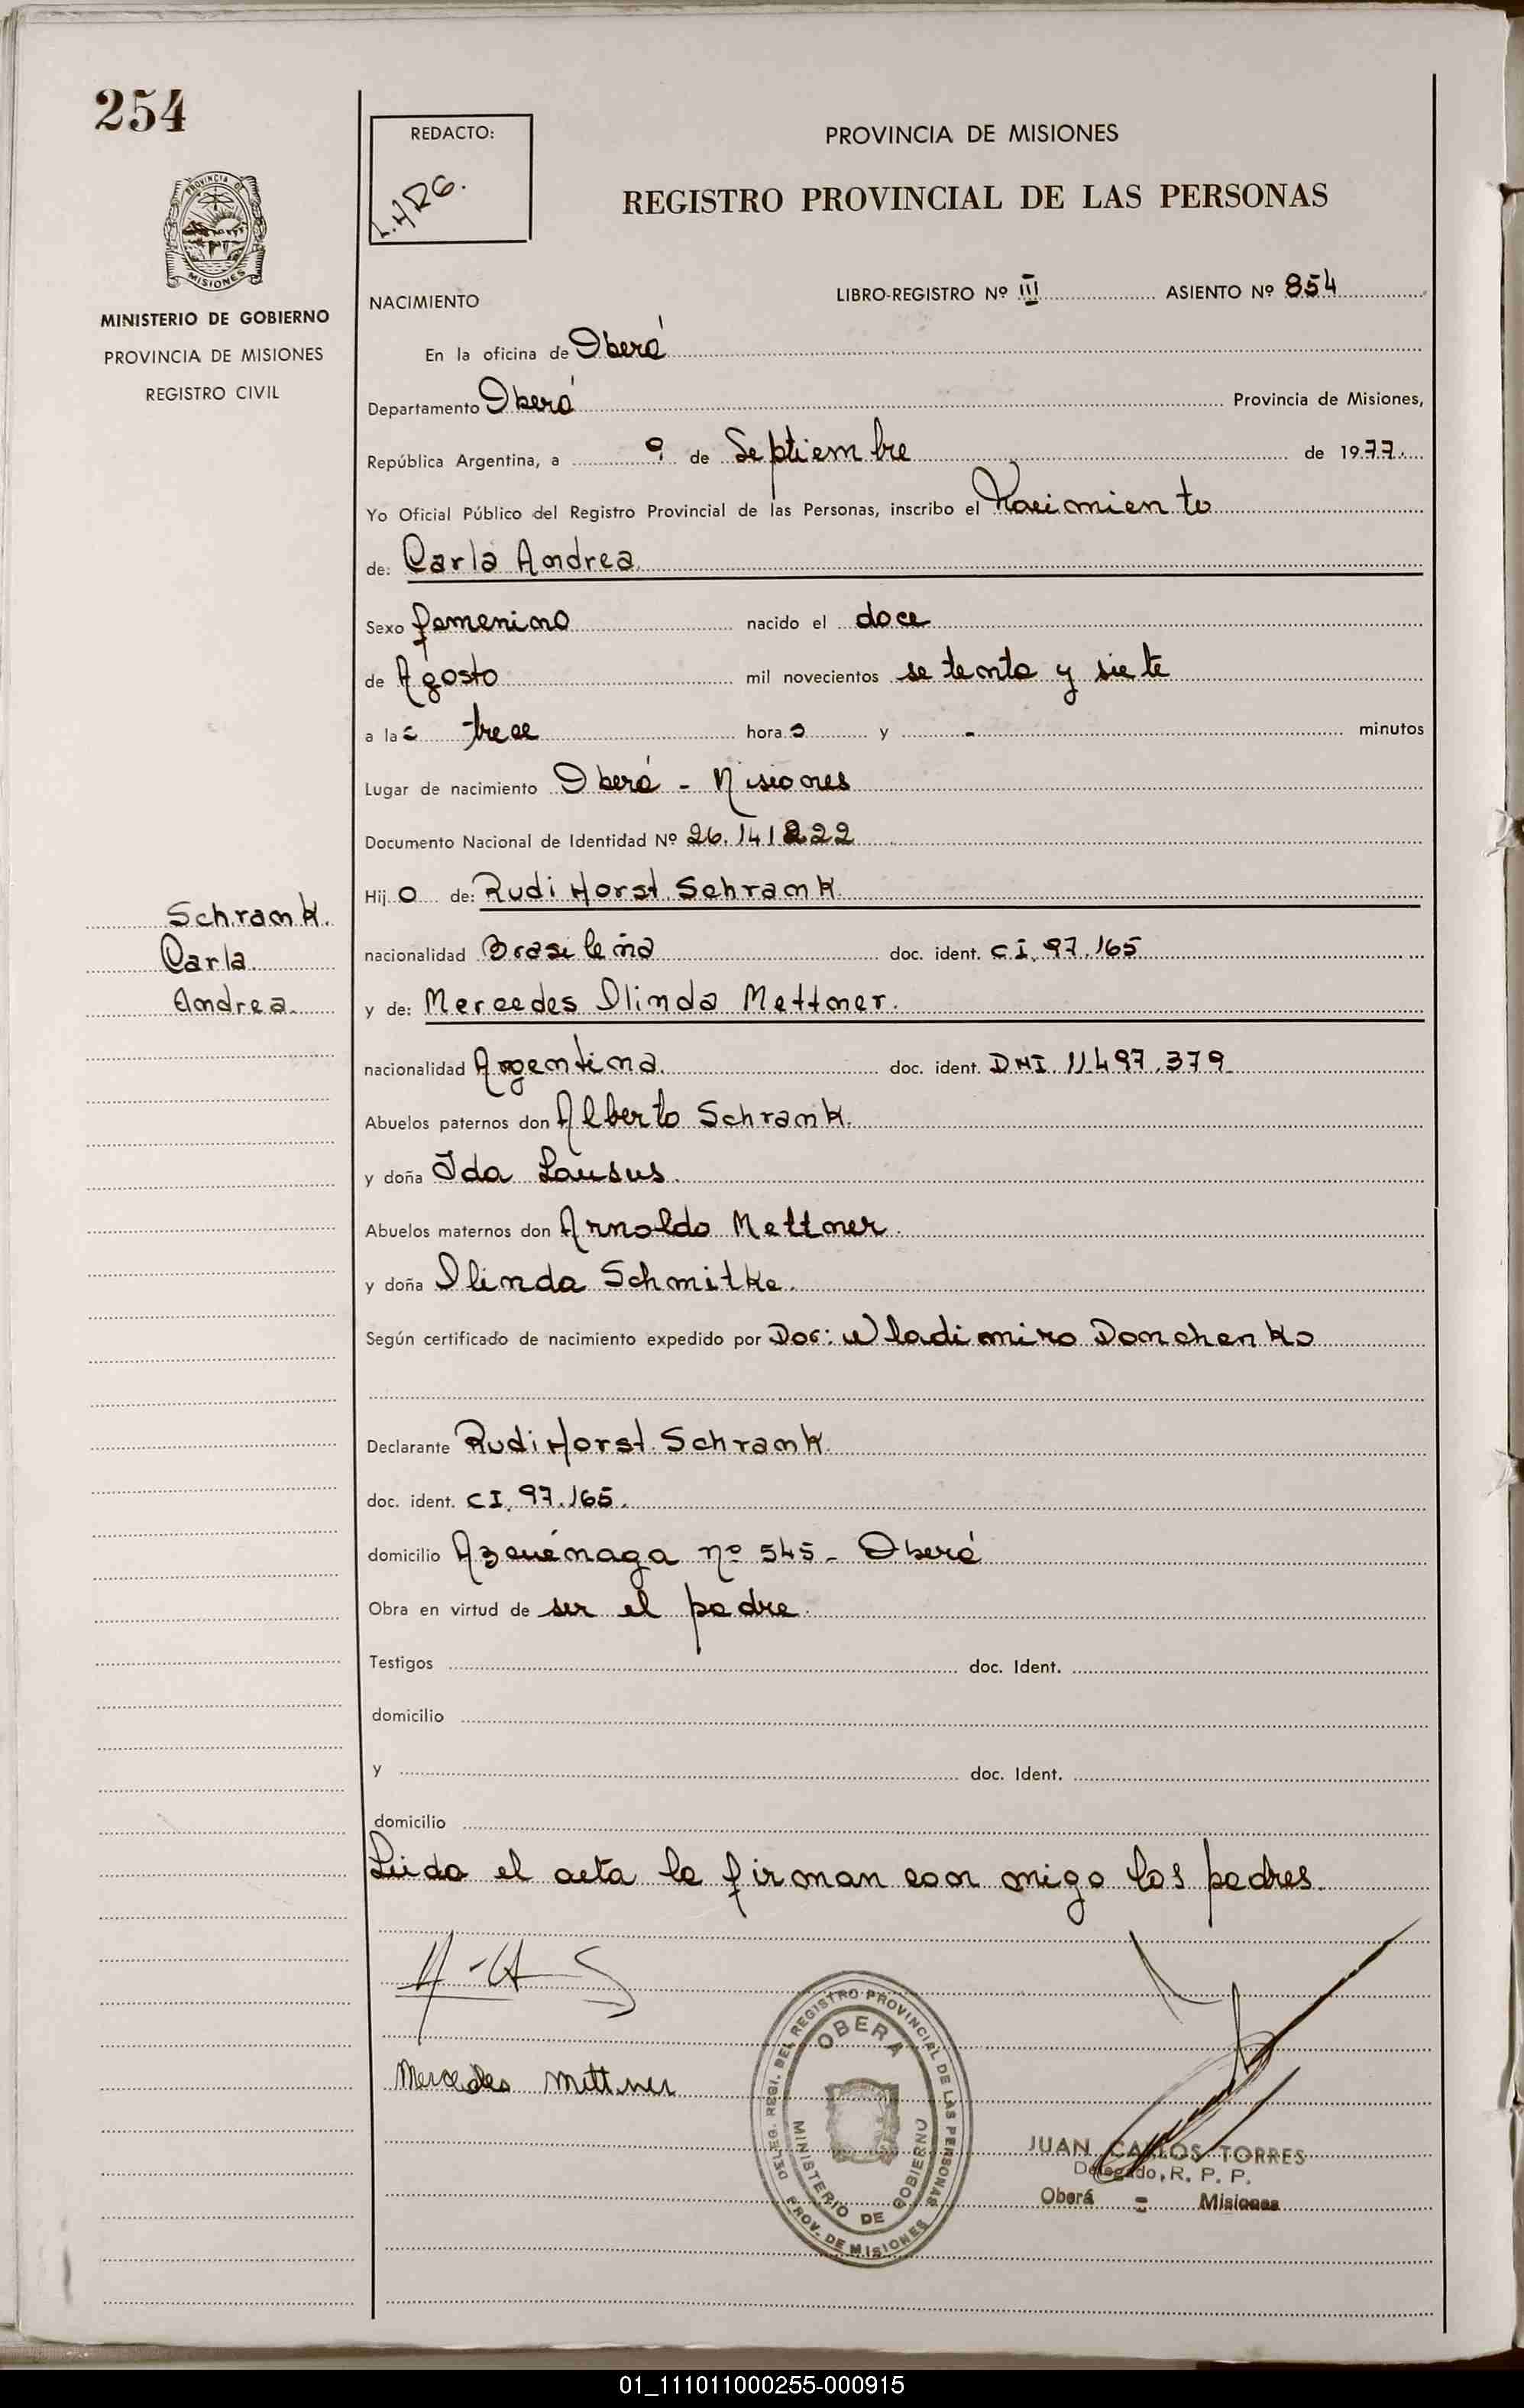 254
REDACTO:
L.HRG.
PROVINCIA DE MISIONES
REGISTRO PROVINCIAL DE LAS PERSONAS
PROVINCIA DE
MISIONES
MINISTERIO DE GOBIERNO
PROVINCIA DE MISIONES
REGISTRO CIVIL
NACIMIENTO
LIBRO-REGISTRO Nº III ASIENTO Nº 854
En la oficina de Oberá
Departamento Oberá Provincia de Misiones,
República Argentina, a 9 de Septiembre de 1977.
Yo Oficial Público del Registro Provincial de las Personas, inscribo el Nacimiento
de: Carla Andrea
Sexo femenino nacido el doce
de Agosto mil novecientos setenta y siete
a las trece horas y - minutos
Lugar de nacimiento Oberá - Misiones
Documento Nacional de Identidad Nº 26.141.222
Hijo de: Rudi Horst Schrank
nacionalidad Brasileña doc. ident. CI. 97.165
y de: Mercedes Olinda Mettner.
nacionalidad Argentina doc. ident. DNI. 11.497.379
Abuelos paternos don Alberto Schrank.
y doña Ida Lausus.
Abuelos maternos don Arnoldo Mettner.
y doña Olinda Schmitke.
Según certificado de nacimiento expedido por Doc: Wladimiro Donchenko
Schrank.
Carla
Andrea.
Declarante Rudi Horst Schrank
doc. ident. CI. 97.165.
domicilio Azcuénaga nº 545- Oberá
Obra en virtud de ser el padre.
Testigos doc. Ident.
domicilio
y doc. Ident.
domicilio
Leída el acta la firman conmigo los padres.
Mercedes Mettner
DELEG. REGI. DEL REGISTRO PROVINCIAL DE LAS PERSONAS
OBERA
MINISTERIO DE GOBIERNO
PROV. DE MISIONES
JUAN CARLOS TORRES
Delegado, R. P. P.
Oberá - Misiones
01_111011000255-000915